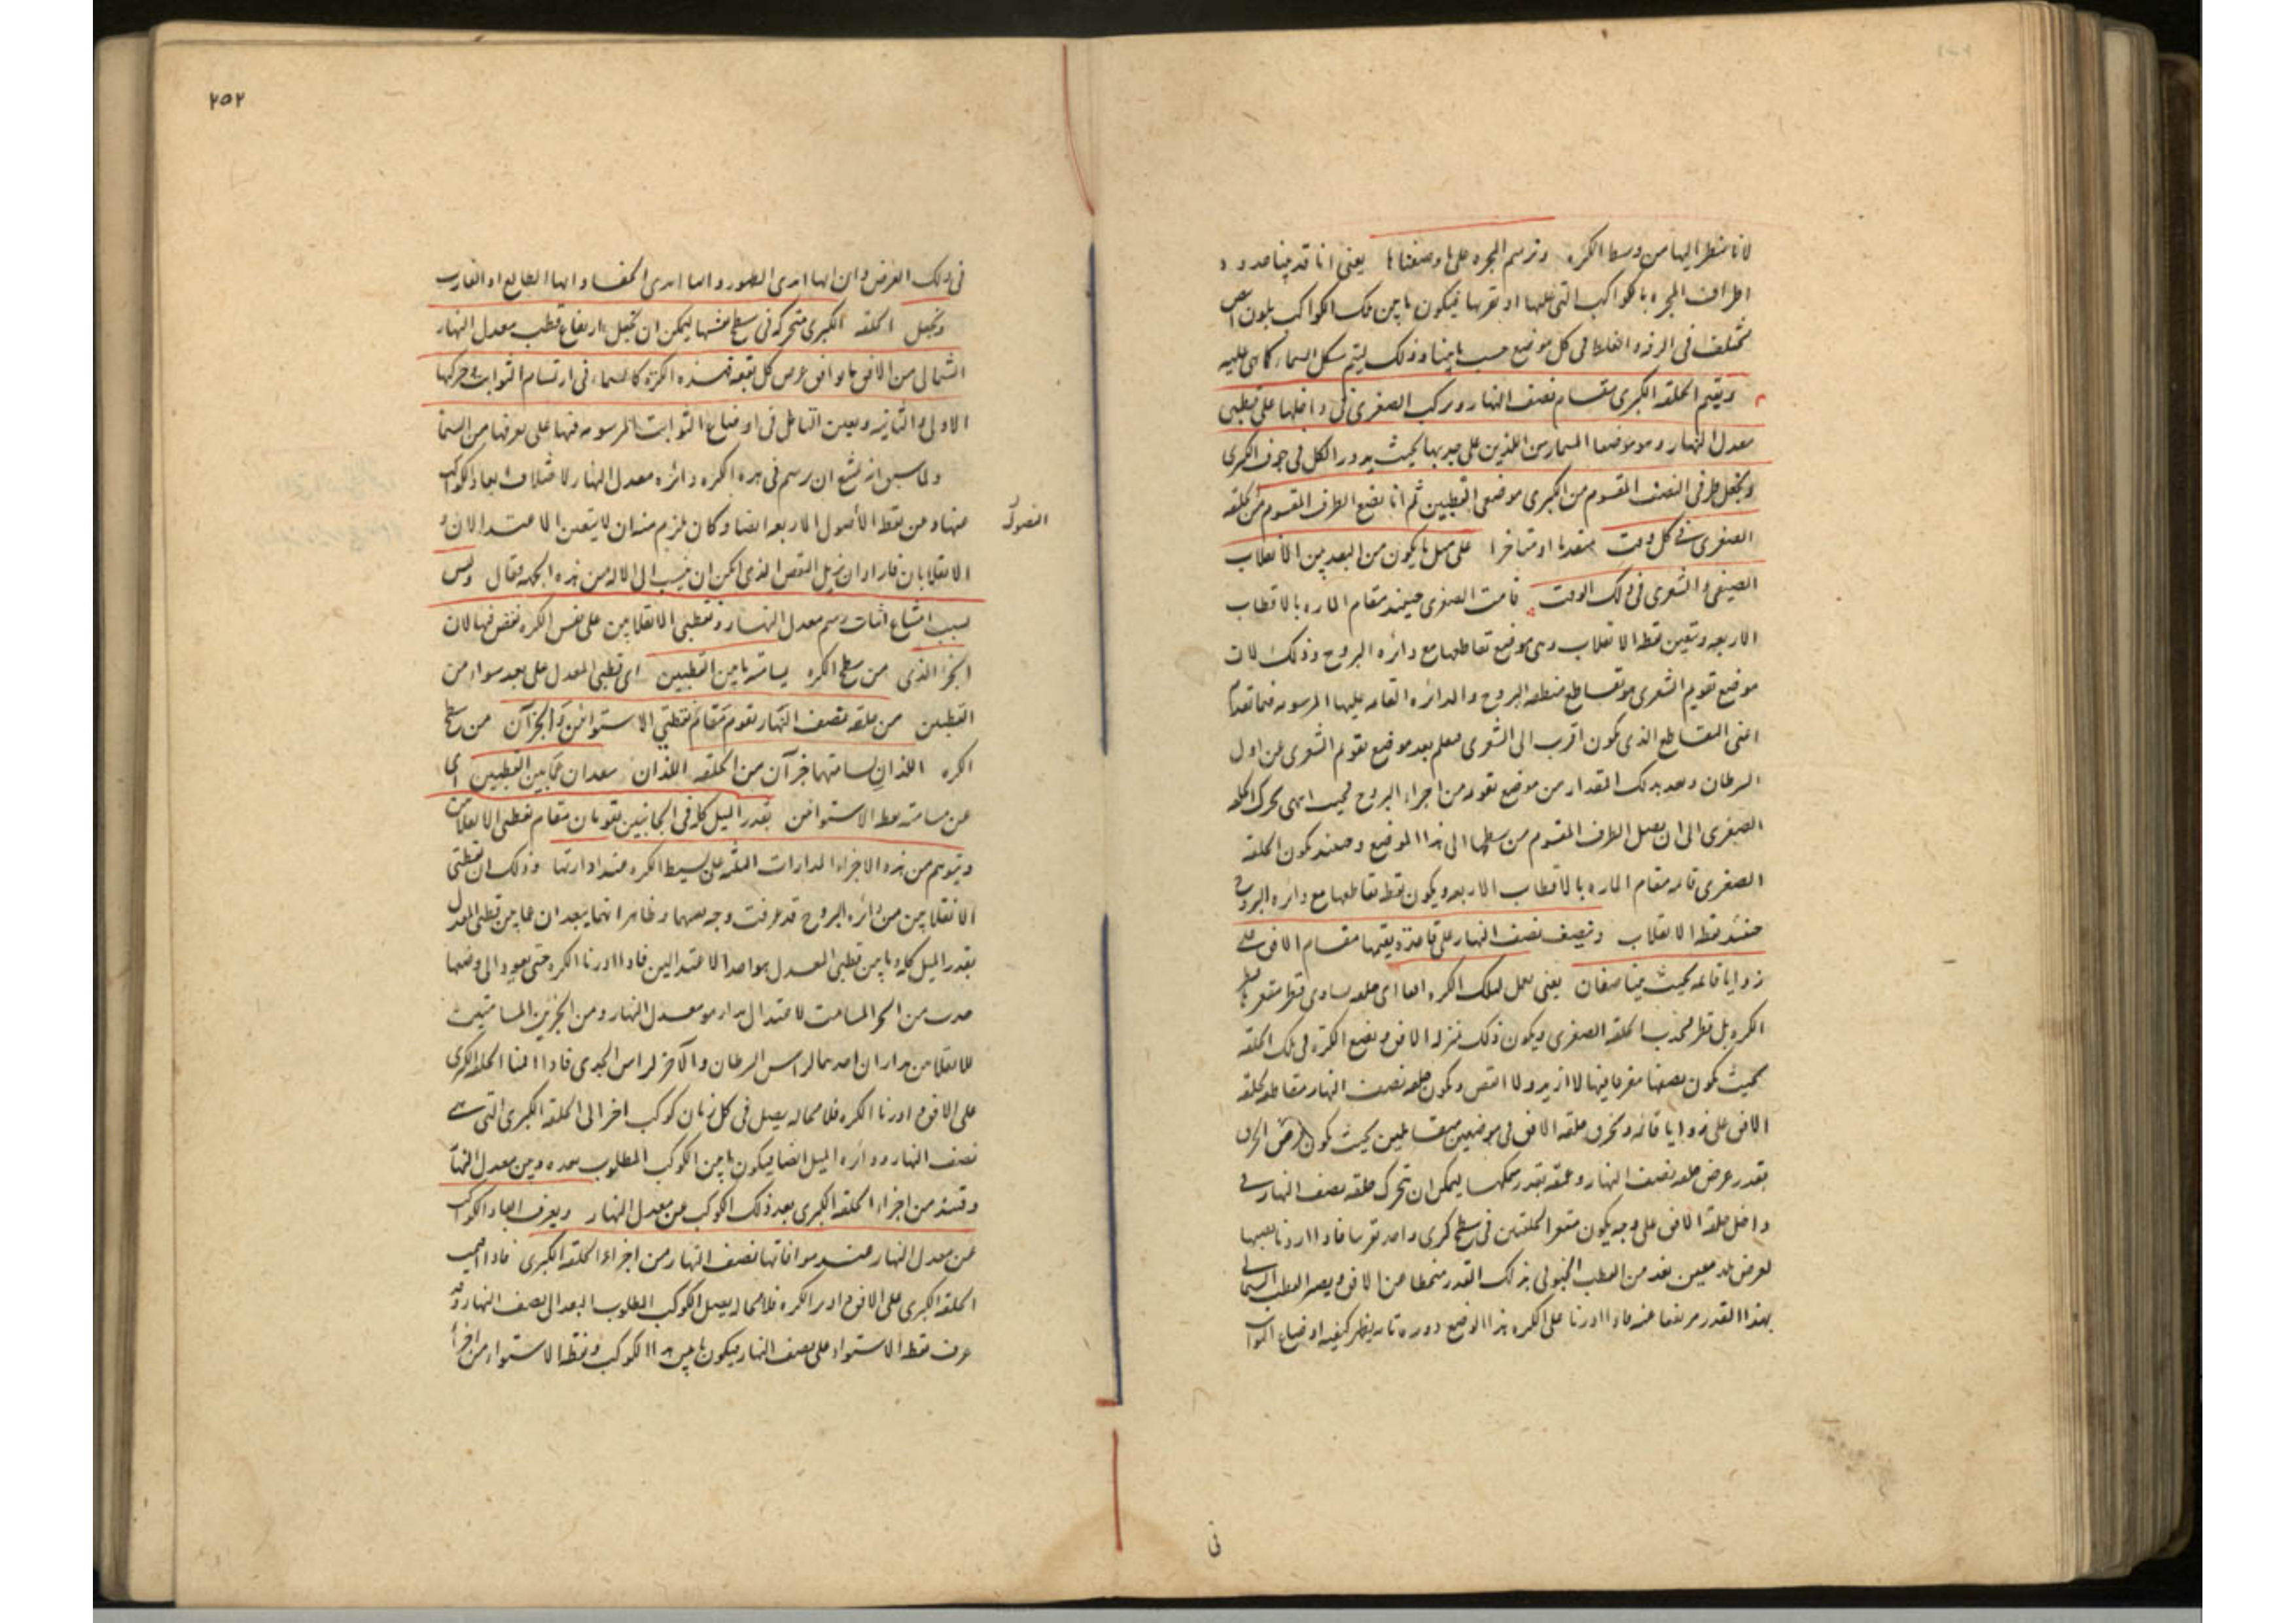 لانا ننظر اليها من وسط الكرة ونرسم المجرة على ما وصفناها يعنى انا قد بينا حدود
اطراف المجره بالكواكب التى عليها او تقربها فيكون ما بين تلك الكواكب بلون ابيض
مختلف فى الرقه والغلظ فى كل موضع حسب ما بينا وذلك ليتم شكل السماء كما هى عليه
ونقيم الحلقه الكبرى مقام نصف النهار ونركب الصغرى فى داخلها على قطبى
معدل النهار وهو موضعا المسمارين اللذين على جنبيها بحيث يدور الكل فى جوف الكبرى
ونجعل طرفى النصف المقسوم من الكبرى موضعى القطبين ثم انا نضع الطرف المقسوم من حلقه
الصغرى فى كل وقت متقدما او متاخرا على مثل ما يكون من البعد بين الانقلاب
الصيفى والشعرى فى ذلك الوقت قامت الصغرى حينئذ مقام الماره بالاقطاب
الاربعه وتتعين نقط الانقلاب وهى موضع تقاطعها مع دائره البروج وذلك لان
موضع تقويم الشعرى هو تقاطع منطقه البروج والدائره القائمه عليها المرسومه فيما تقدم
اعنى التقاطع الذى يكون اقرب الى الشعرى فعلم بعد موضع تقويم الشعرى عن اول
السرطان وبعد بذلك المقدار من موضع تقويمه من اجراء البروج فحيث انتهى تحرك الحلقه
الصغرى الى ان يصل الطرف المقسوم من سطحها الى هذا الموضع وحينئذ يكون الحلقه
الصغرى قائمه مقام الماره بالاقطاب الاربعه ويكون نقط تقاطعها مع دائره البروج
حينئذ نقط الانقلاب ونضيف نصف النهار على قاعدة ونقيمها مقام الافق على
زوايا قائمه بحيث يتناصفان يعنى نعمل لتلك الكره ايضا اى حلقه يساوى قطر مقعرها قطر
الكره بل قطر محدب الحلقه الصغرى ويكون ذلك بمنزله الافق ونضع الكرة فى تلك الحلقه
بحيث يكون نصفها مغربا فيها لا ازيد ولا انقص ويكون حلقه نصف النهار مقاطعه لحلقه
الافق على زوايا قائمه ونخرق حلقه الافق فى موضعين متقابلين بحيث يكون عرض الخرق
بقدر عرض حلقه نصف النهار وعمقه بقدر سمكها ليمكن ان تتحرك حلقه نصف النهار فى
داخل حلقة الافق على وجه يكون مقعر الحلقتين فى سطح كرى واحد تقريبا فاذا اردنا نصبها
لعرض بلد معين بعد من القطب الجنوبى بذلك القدر منحطا عن الافق ويصير القطب الشمالى
بهذا القدر مرتفعا عنه فاذا ادرنا على الكره هذا الوضع دورة تامه يظهر كيفيه اوضاع الثوابت
فى
٢٥٢
فى ذلك العرض وان ايها ابدى الظهور وايها ابدى الخفاء وايها الطالع او الغارب
ونجعل الحلقه الكبرى متحركه فى سطح نفسها ليمكن ان نجعل ارتفاع قطب معدل النهار
الشمالى من الافق ما يوافق عرض كل بقعه فهذه الكرة كالسماء فى ارتسام الثوابت وحركتها
الاولى والثانيه ويعين التامل فى اوضاع الثوابت المرسومه فيها على معرفتها من السماء
ولما سبق انه يمتنع ان يرسم فى هذه الكره دائره معدل النهار لاختلاف ابعاد الكواكب
عنها وعن نقط الأصول الاربعه ايضا وكان يلزم منه ان لا يتعين الاعتدالان و
الفصول
الانقلابان فاراد ان يزيل النقص الذى يمكن ان ينسب الى الاله من هذه الجهه فقال وليس
بسبب امتناع اثبات رسم معدل النهار ونقطتى الانقلابين على نفس الكره نقص فيها لان
الجزء الذى من سطح الكره يسامته ما بين القطبين اى قطبى المعدل على بعد سواء من
القطبين من حلقه نصف النهار يقوم مقام نقطتى الاستوائين والجزآن من سطح
الكره اللذان يسامتهما جزآن من الحلقه اللذان يبعدان عما بين القطبين اى
عن مسامته نقط الاستوائين بقدر الميل كله فى الجانبين يقومان مقام نقطتى الانقلابين
ويتوهم من هذه الاجزاء المدارات الثلثه على بسيط الكره عند ادارتها وذلك ان نقطتى
الانقلابين من دائره البروج قد عرفت وجه تعيينهما وظاهر انهما يبعدان عما بين قطبى المعدل
بقدر الميل كله وما بين قطبى المعدل هو احد الاعتدالين فاذا ادرنا الكره حتى يعود الى وضعها
حدث من الجزء المسامت للاعتدال مدار هو معدل النهار ومن الجزئين المسامتين
للانقلابين مداران احدهما لراس السرطان والآخر لراس الجدى فاذا اقمنا الحلقه الكبرى
على الافق وادرنا الكره فلا محاله يصل فى كل زمان كوكب اخر الى الحلقه الكبرى التى هى
نصف النهار ودائره الميل ايضا فيكون ما بين الكوكب المطلوب بعده وبين معدل النهار
وقتئذ من اجزاء الحلقه الكبرى بعد ذلك الكوكب عن معدل النهار ويعرف ابعاد الكواكب
عن معدل النهار عند موافاتها نصف النهار من اجزاء الحلقه الكبرى فاذا نصبت
الحلقه الكبرى على الافق وادير الكره فلا محاله يصل الكوكب المطلوب البعد الى نصف النهار وقد
عرف نقط الاستواء على نصف النهار فيكون ما بين هذا الكوكب ونقط الاستواء من اجزاء